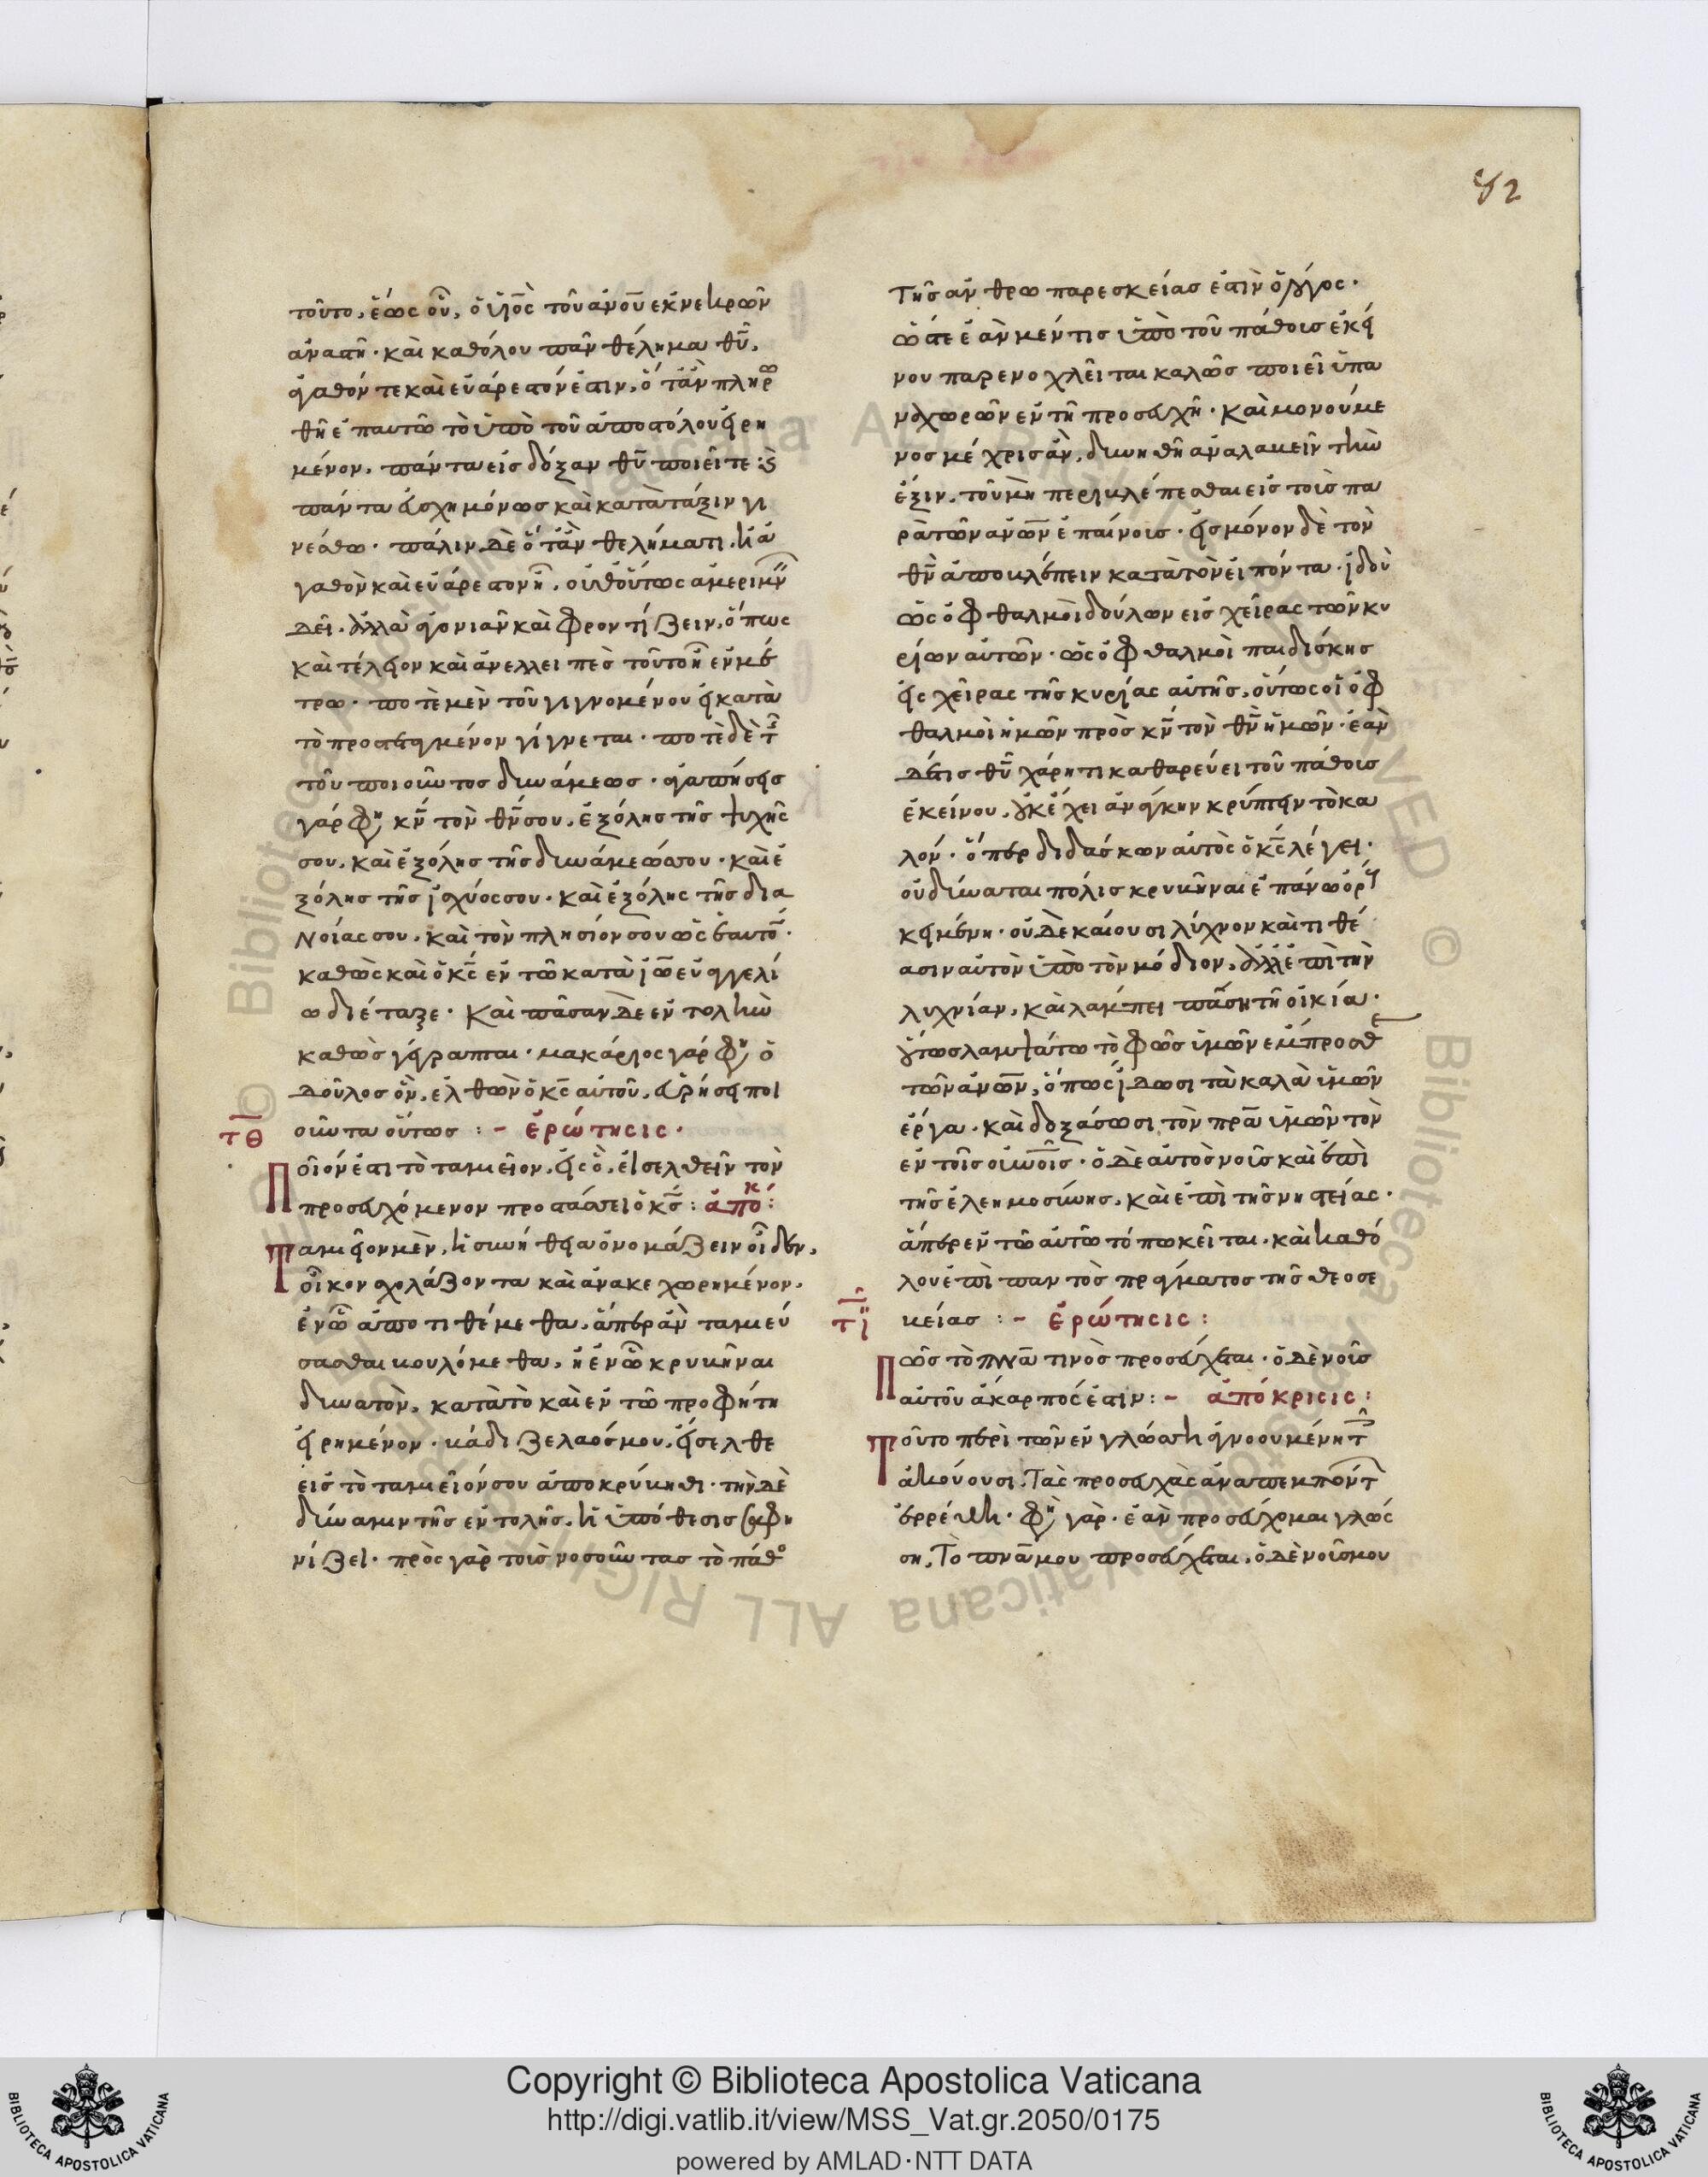 82
τοῦτο, ἕως οὗ, ὁ υἱὸς τοῦ ἀν̅ου̅ ἐκ νεκρῶν
ἀναστῇ· καὶ καθόλου πᾶν θέλημα θυ̅,
ἀγαθόν τε καὶ εὐάρεστόν ἐστιν, ὅτἂν πληρω
θῇ ἐπ αυτῶ τὸ ὑπὸ τοῦ ἀποστόλου εἰρη
μένον, πάντα εἰς δόξαν θυ̅ ποιεῖτε: ϛ̀
πάντα εὐσχημόνως καὶ κατὰ τάξιν γι
νέσθω· πάλιν δὲ ὅτἂν θελήματι, ἢ ἀ
γαθὸν καὶ εὐάρεστον ἦ, οὐθ οὕτως ἀμεριμν
δεῖ· ἀλλὰ ἀγωνιᾶν καὶ φροντίζειν, ὅπως
καὶ τέλειον καὶ ἀνελλειπὲς τοῦτο ἦ ἐν μέ
τρω· ποτὲ μὲν τοῦ γιγνομένου εἰ κατὰ
τὸ προστεταγμένον γίγνεται· ποτὲ δὲ τ
τοῦ ποιοῦντος δυνάμεως· ἀγαπήσεις
γάρ φη κν̅ τὸν θν̅ σου, ἐξ ὅλης τῆς ψυχῆς
σου, καὶ ἐξ όλης τῆς δυνάμεώς σου· καὶ ἐ
ξ όλης τῆς ἰσχύος σου· καὶ ἐξ όλης τῆς δια
νοίας σου, καὶ τὸν πλησίον σου ὡς ἑαυτό·
καθὼς καὶ ὁ κς̅ ἐν τῶ κατὰ ἰω̅ εὐαγγελί
ω διέταξε· Καὶ πᾶσαν δὲ ἐντολὴν
καθὼς γέγραπται· μακάριος γάρ φη ὁ
δοῦλος ὃν, ἐλθὼν ὁ κς̅ αὐτοῦ, εὑρήσει ποι
οῦντα οὕτως :- ἐρώτησις·
τθ
Ποῖόν ἐστι τὸ ταμιεῖον, εἰς ὃ, εἰσελθεῖν τὸν
προσευχόμενον προστάσσει ὁ κς̅: ἀποκ:
Ταμιεῖον μὲν, ἡ συνήθεια ὀνομάζειν οἶδεν,
οἶκον σχολάζοντα καὶ ἀνακεχωρημένον,
ἐν ᾧ ἀποτιθέμεθα, ἅπερ ἂν ταμιεύ
σασθαι βουλόμεθα, ἢ ἐν ᾧ κρυβῆναι
δυνατὸν, κατὰ τὸ καὶ ἐν τῶ προφήτη
εἰρημένον· βάδιζε λαός μου, εἴσελθε
εἰς τὸ ταμιεῖόν σου ἀποκρύβηθι· τὴν δὲ
δύναμιν τῆς ἐντολῆς, ἡ ὑπόθεσις σαφη
νίζει· πρὸς γὰρ τοὺς νοσοῦντας τὸ πάθο
Τῆς ἀνθρωπαρεσκείας ἐστὶν ὁ λόγος·
ὥστε ἐὰν μέν τις ὑπὸ τοῦ πάθους ἐκεί
νου παρενοχλεῖται καλῶς ποιεῖ ὑπα
ναχωρῶν ἐν τῇ προσευχῇ· Καὶ μονούμε
νος μέχρις ἂν, δυνηθῆ ἀναλαβεῖν τὴν
ἕξιν, τοῦ μὴ περιβλέπεσθαι εἰς τοὺς πα
ρὰ τῶν ἀν̅ων̅ ἐπαίνους· εἰς μόνον δὲ τὸν
θν̅ ἀποβλέπειν κατὰ τὸν εἰπόντα· ἰδοὺ
ὡς ὀφθαλμοὶ δούλων εἰς χεῖρας τῶν κυ
ρίων αὐτῶν· ὡς ὀφθαλμοὶ παιδίσκης
εἰς χεῖρας τῆς κυρίας αὐτῆς, οὕτως οἱ ὀφ
θαλμοὶ ἡμῶν πρὸς κν̅ τὸν θν̅ ἡμῶν· ἐὰν
δέ τις θυ̅ χάριτι καθαρεύει τοῦ πάθους
ἐκείνου, οὐκ ἔχει ἀνάγκην κρύπτειν τὸ κα
λόν· ὅπερ διδάσκων αὐτὸς ὁ κς̅ λέγει·
οὐ δύναται πόλις κρυβῆναι ἐπάνω ὄρ
κειμένη· οὐδὲ καίουσι λύχνον καὶ τιθέ
ασιν αὐτὸν ὑπὸ τὸν μόδιον, ἀλλ ἐπὶ τὴν
λυχνίαν, καὶ λάμπει πᾶσι τῇ οἰκία·
οὕτως λαμψάτω τὸ φῶς ὑμῶν ἔμπροσθε
τῶν ἀν̅ων̅, ὅπως ἴδωσι τὰ καλὰ ὑμῶν
ἔργα· καὶ δοξάσωσι τὸν πρα̅ ὑμῶν τὸν
ἐν τοῖς οὐνοῖς· ὁ δὲ αὐτὸς νοῦς καὶ ἐπὶ
τῆς ἐλεημοσύνης, καὶ ἐπὶ τῆς νηστείας·
ἅπερ ἐν τῶ αὐτῶ τόπω κεῖται· καὶ καθό
λου ἐπὶ παντὸς πράγματος τῆς θεοσε
βείας :- ἐρώτησις:
τι
Πῶς τὸ πνα̅ τινὸς προσεύχεται· ὁ δὲ νοῦς
αὐτοῦ ἄκαρπός ἐστιν:- ἀπόκρισις:
Τοῦτο περὶ τῶν ἐν γλώσση ἀγνοουμένη τ
ἀκούουσι, Τὰς προσευχὰς ἀναπεμπόντ
ἐρρέθη· φη γὰρ· ἐὰν προσεύχομαι γλώς
ση, Τὸ πνα̅ μου προσεύχεται, ὁ δὲ νοῦς μου
Copyright © Biblioteca Apostolica Vaticana
http://digi.vatlib.it/view/MSS_Vat.gr.2050/0175
powered by AMLAD·NTT DATA
BIBLIOTECA APOSTOLICA VATICANA
BIBLIOTECA APOSTOLICA VATICANA